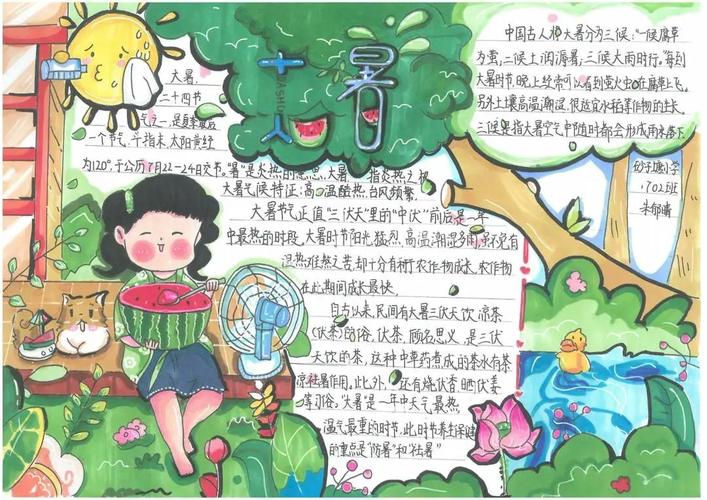 大暑
DASHU
大暑,
二十四节
气之一,是夏季最后
一个节气。斗指未,太阳黄经
为120°,于公历7月22-24日交节。"暑"是炎热的意思,大暑,指炎热之极
大暑气候特征:高温酷热,台风频繁。
大暑节气正值"三伏天"里的"中伏"前后,是一年
中最热的时段,大暑时节阳光猛烈、高温潮湿多雨,虽不免有
湿热难熬之苦,却十分有利于农作物成长,农作物
在此期间成长最快。
自古以来,民间有大暑三伏天饮凉茶
(伏茶)的俗,伏茶,顾名思义,是三伏
天饮的茶,这种中草药煮成的茶水有茶
凉祛暑作用,此外,还有烧伏香、晒伏姜
等习俗。"大暑"是一年中天气最热、
湿气最重的时节,此时节养生保健
的重点是"防暑"和"祛暑"
中国古人将大暑分为三候:"一候腐草
为萤,二候土润溽暑,三候大雨时行。"每到
大暑时节,晚上经常可以看到萤火虫在腐草上飞,
另外土壤高温潮湿,很适宜水稻等作物的生长,
三候是指大暑空气中随时都会形成雨水落下
砂子塘小学
1702班